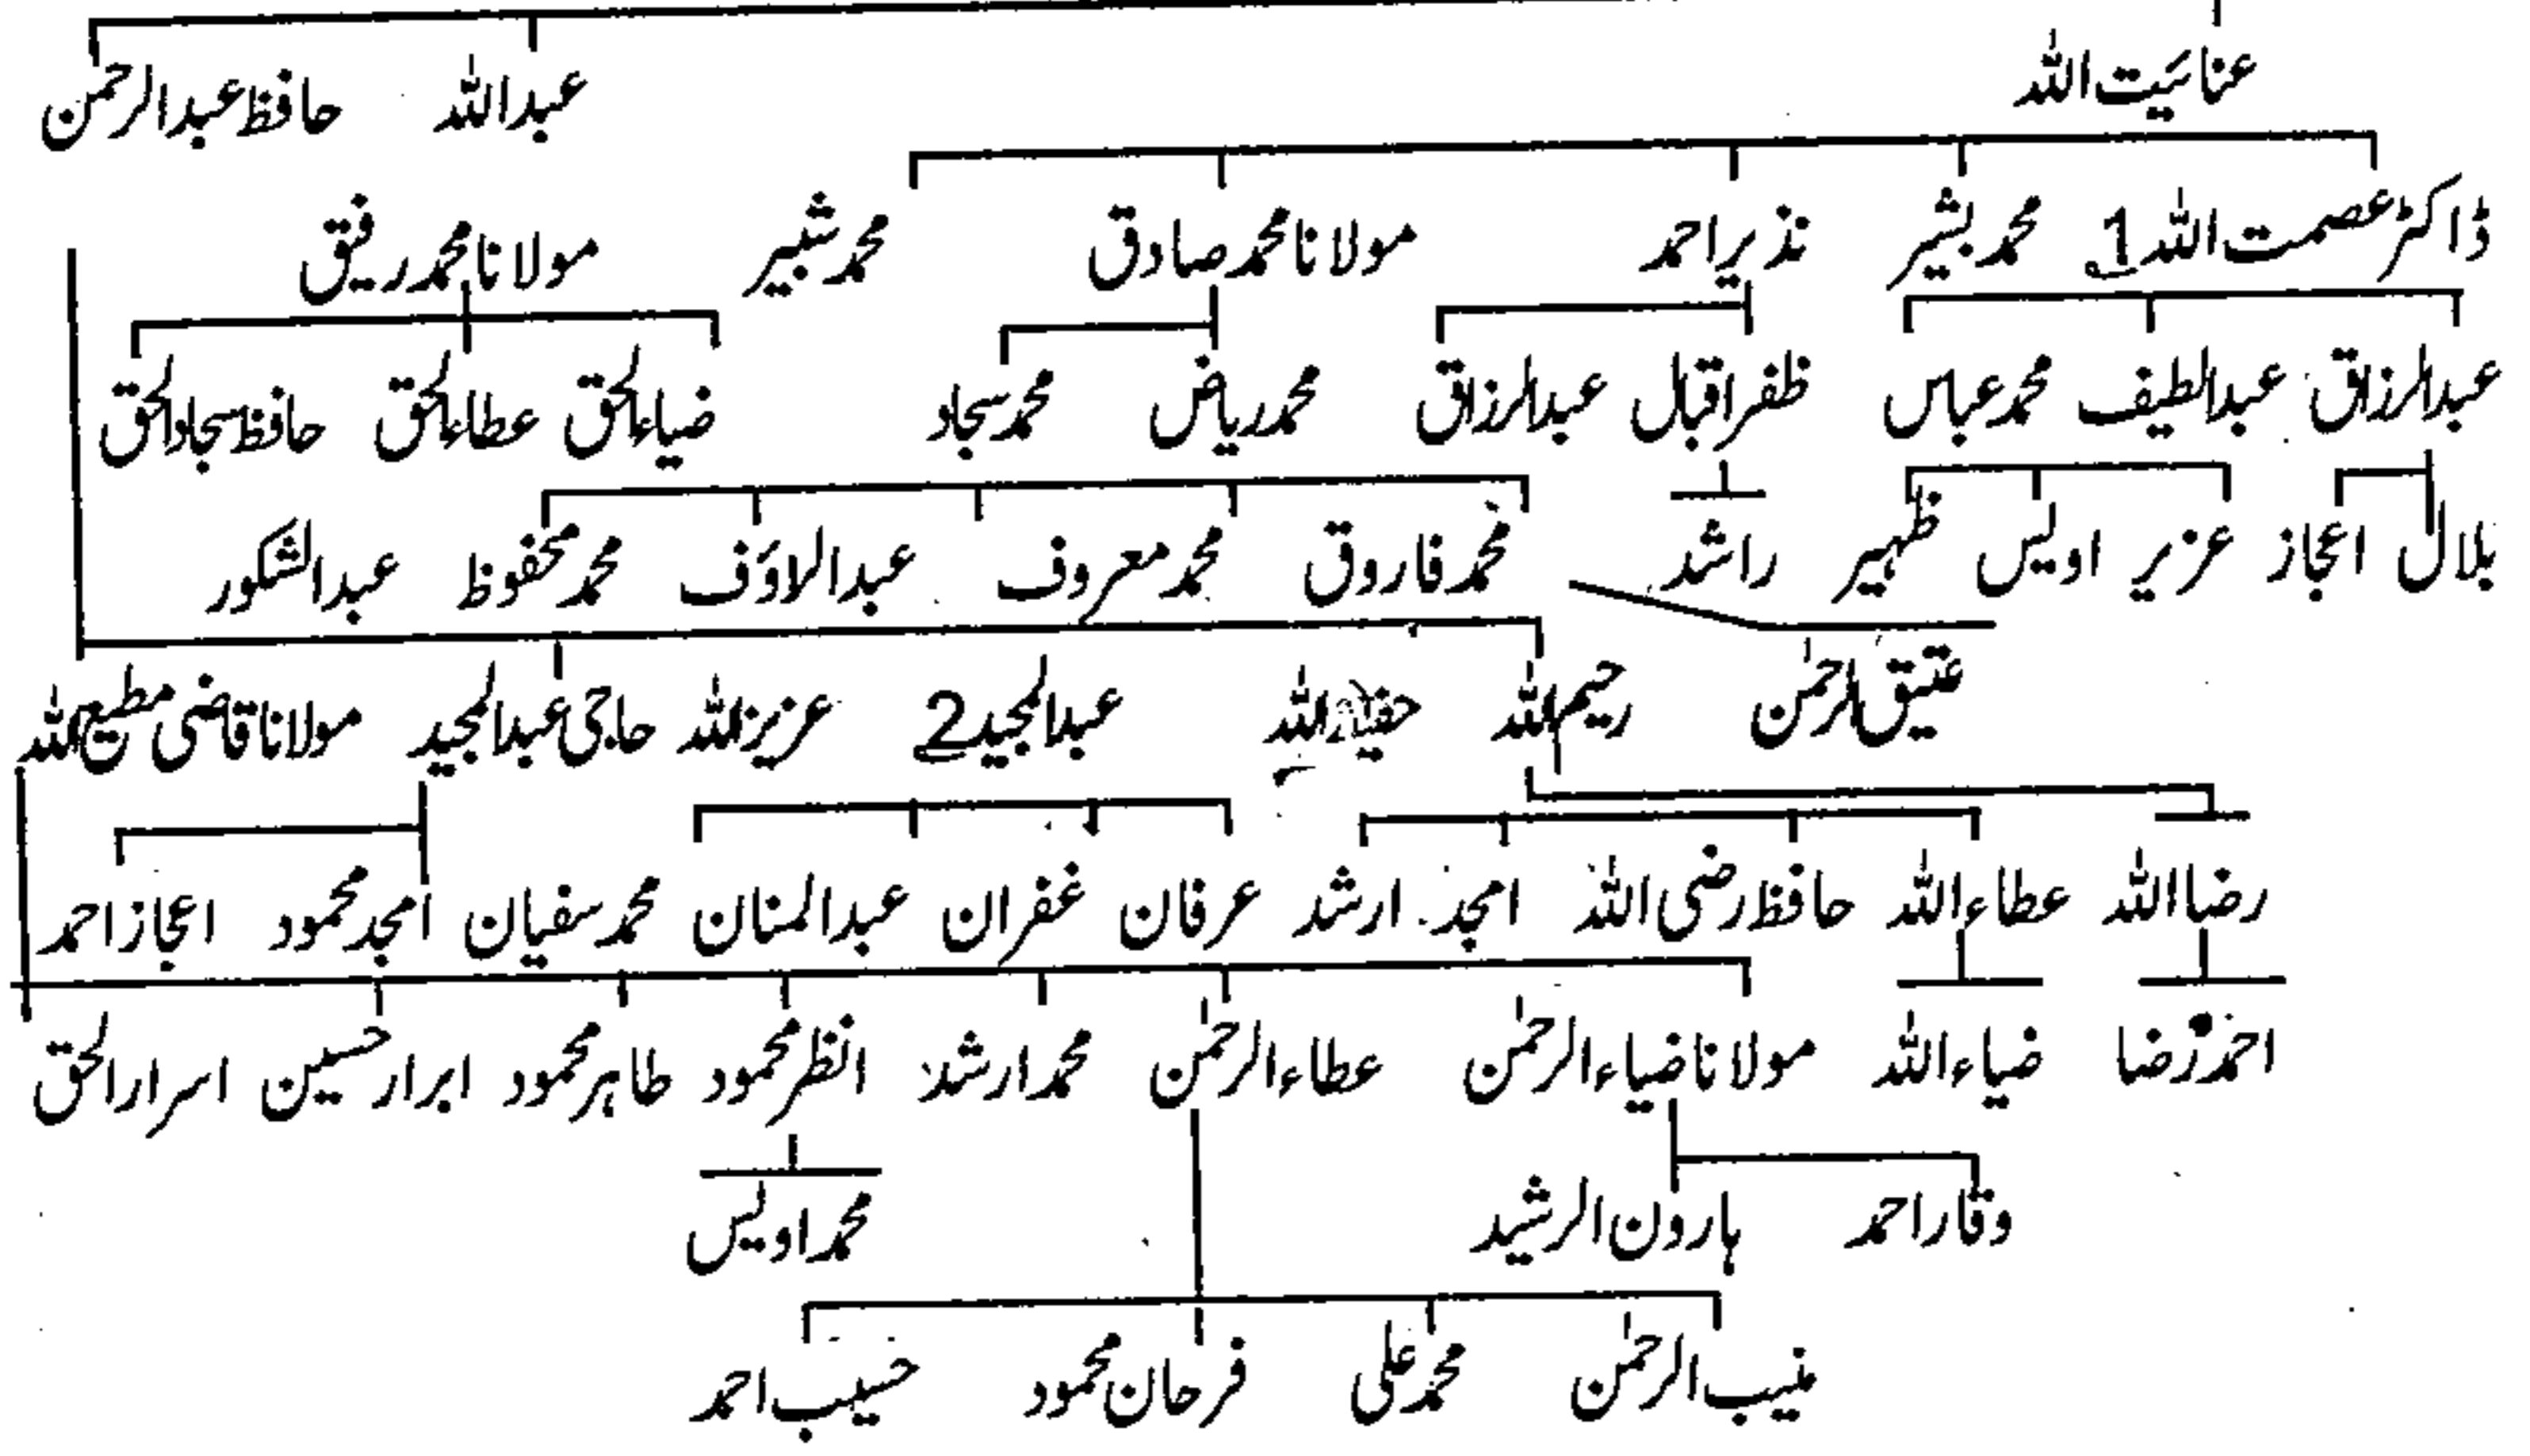 عنائیت اللہ عبداللہ حافظ عبدالرحمٰن
ڈاکٹر عصمت اللہ 1 محمد بشیر نذیر احمد مولانا محمد صادق محمد شبیر مولانا محمد رفیق
عبدالرزاق عبدالطیف محمد عباس ظفر اقبال عبدالرزاق محمد ریاض محمد سجاد ضیاءالحق عطاءالحق حافظ سجادالحق
بلال اعجاز عزیر اویس ظہیر راشد محمد فاروق محمد معروف عبدالاوَف محمد محفوظ عبدالشکور
عتیق الرحمٰن رحیم اللہ اللہ عبدالمجید 2 عزیز اللہ حاجی عبدالمجید مولانا قاضی مطیع اللہ
رضا اللہ عطاء اللہ حافظ رضی اللہ امجد ارشد عرفان غفران عبدالمنان محمد سفیان امجد محمود اعجاز احمد
احمد رضا ضیاء اللہ مولانا ضیاء الرحمٰن عطاء الرحمٰن محمد ارشد انظر محمود طاہر محمود ابرار حسین اسرار الحق
وقار احمد ہارون الرشید محمد اویس
منیب الرحمٰن محمد علی فرحان محمود حسیب احمد